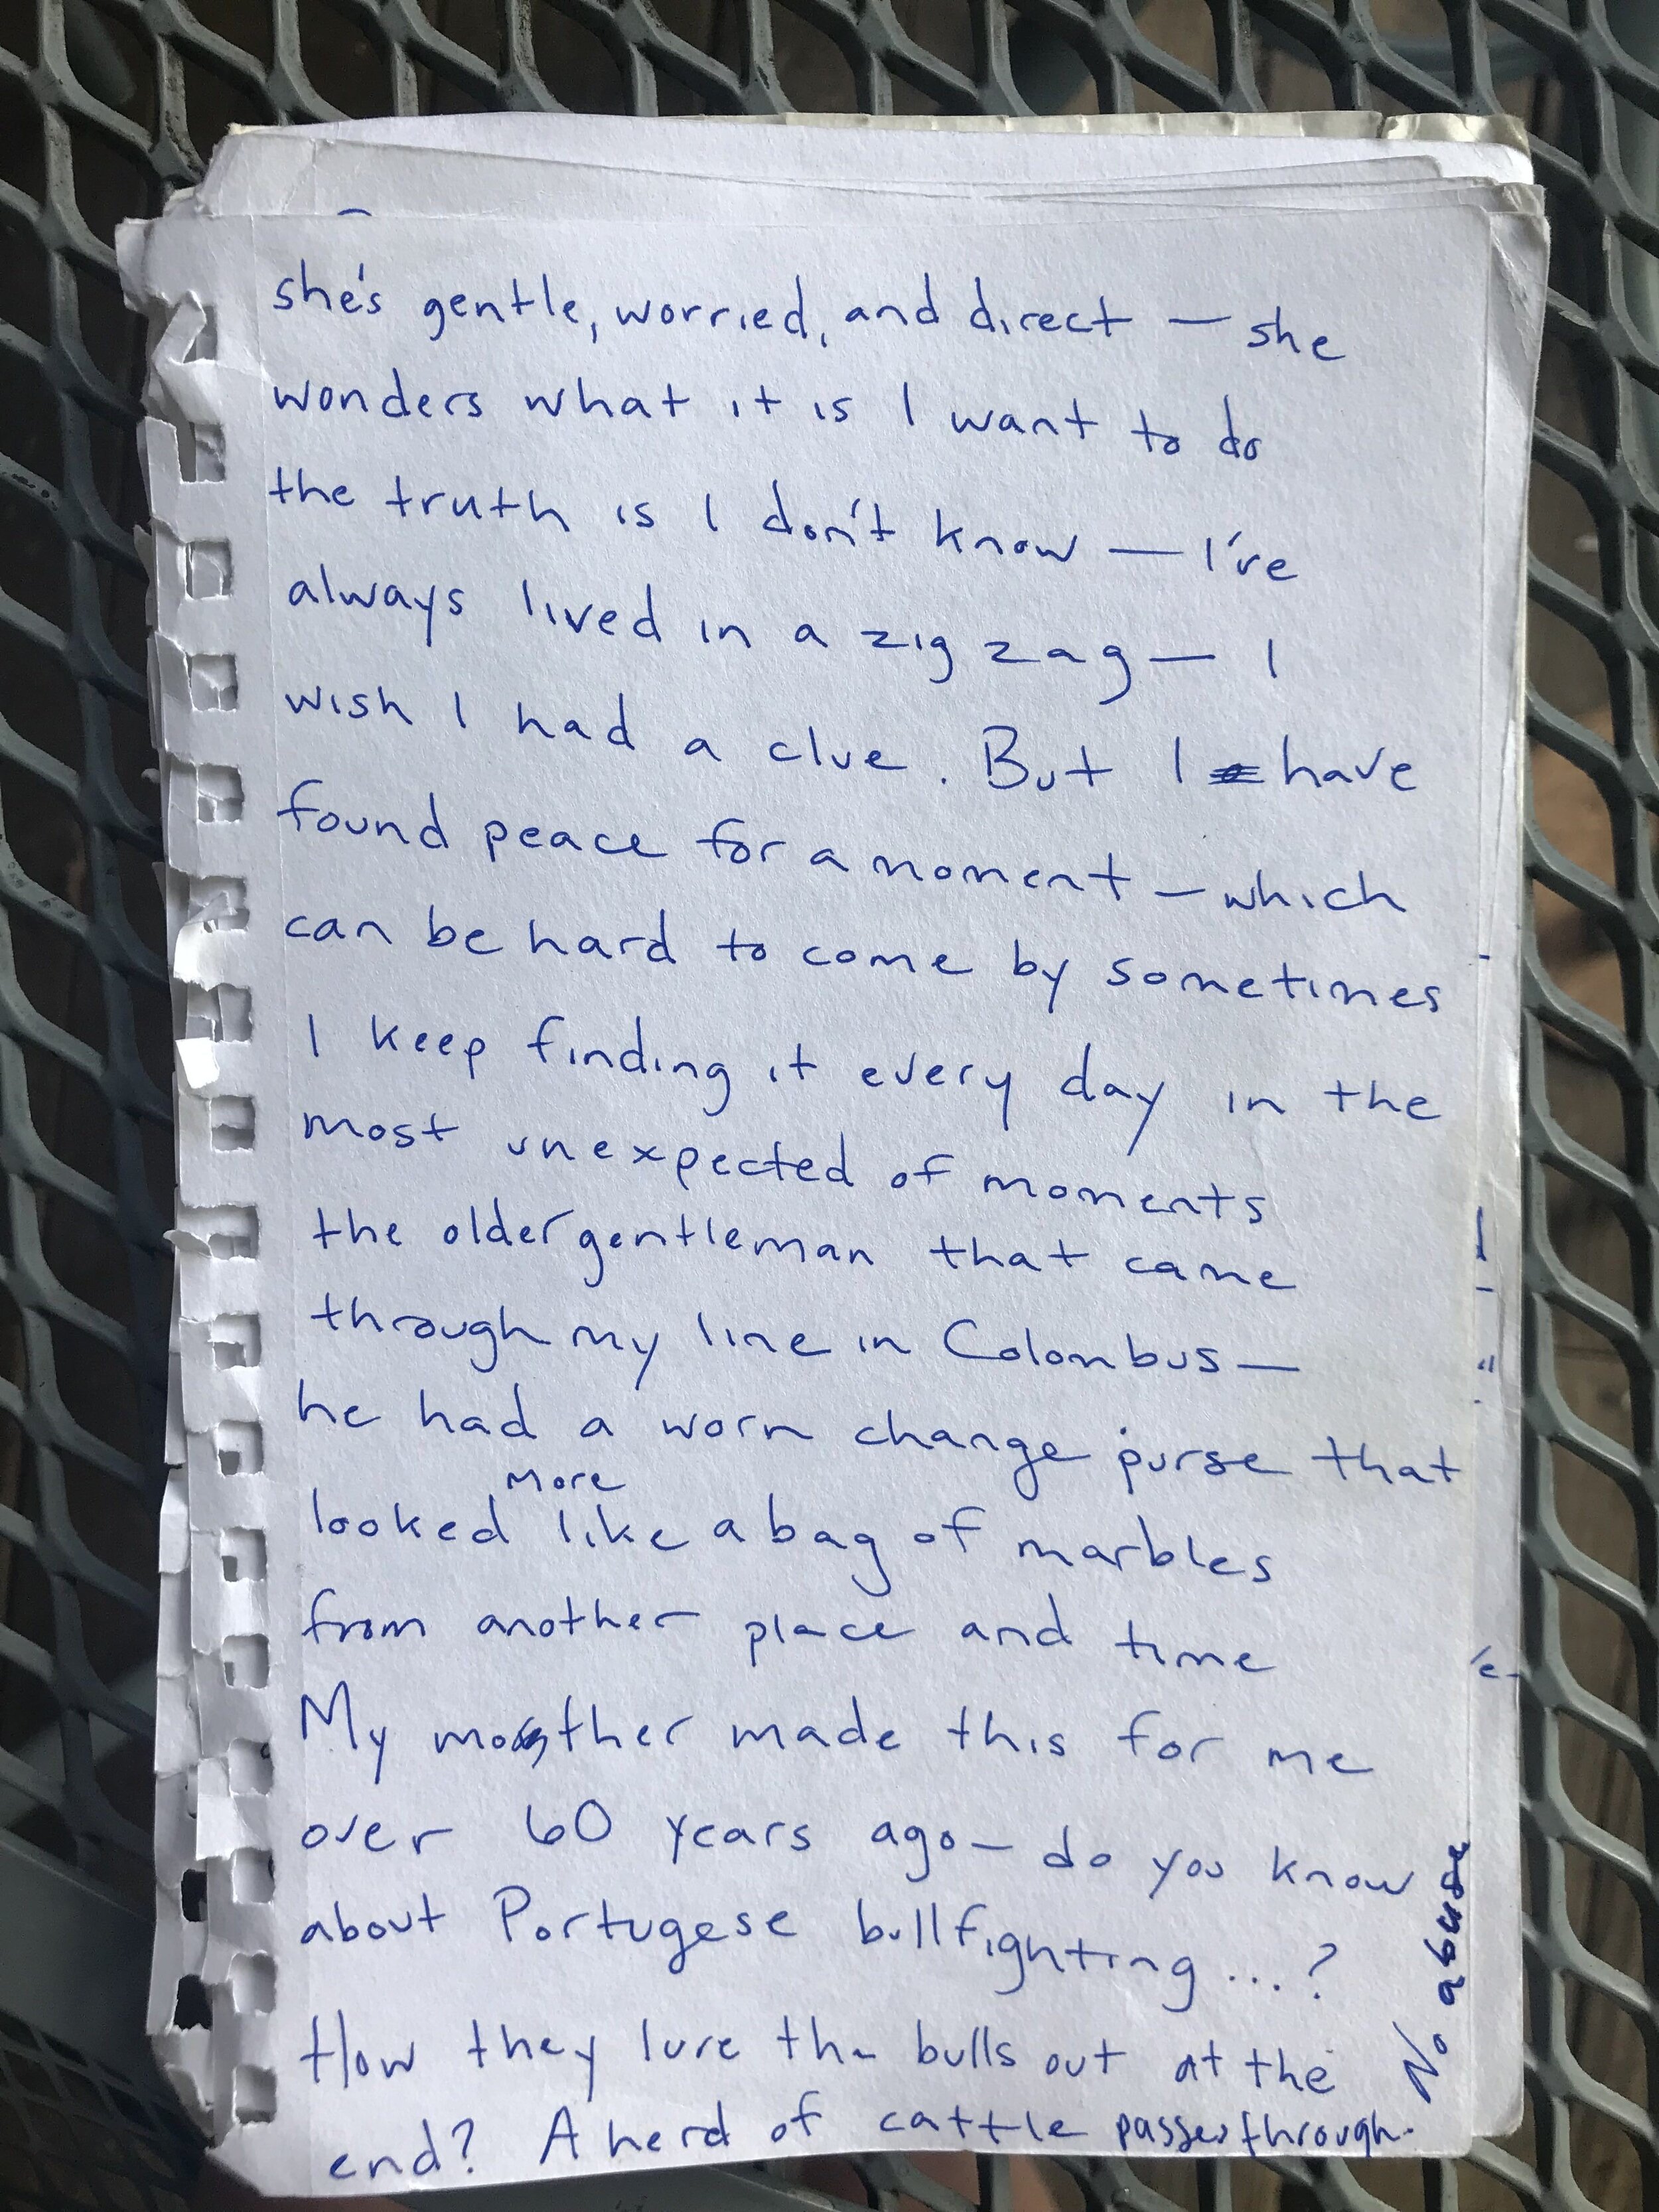 she's gentle, worried, and direct — she
wonders what it is I want to do
the truth is I don't know — I've
always lived in a zig zag — I
wish I had a clue. But I have
found peace for a moment — which
can be hard to come by sometimes
I keep finding it every day in the
most unexpected of moments
the older gentleman that came
through my line in Colombus —
he had a worn change purse that
more
looked like a bag of marbles
from another place and time
My mother made this for me
over 60 years ago — do you know
about Portugese bullfighting...?
How they lure the bulls out at the
end? A herd of cattle passes through.
No abuse